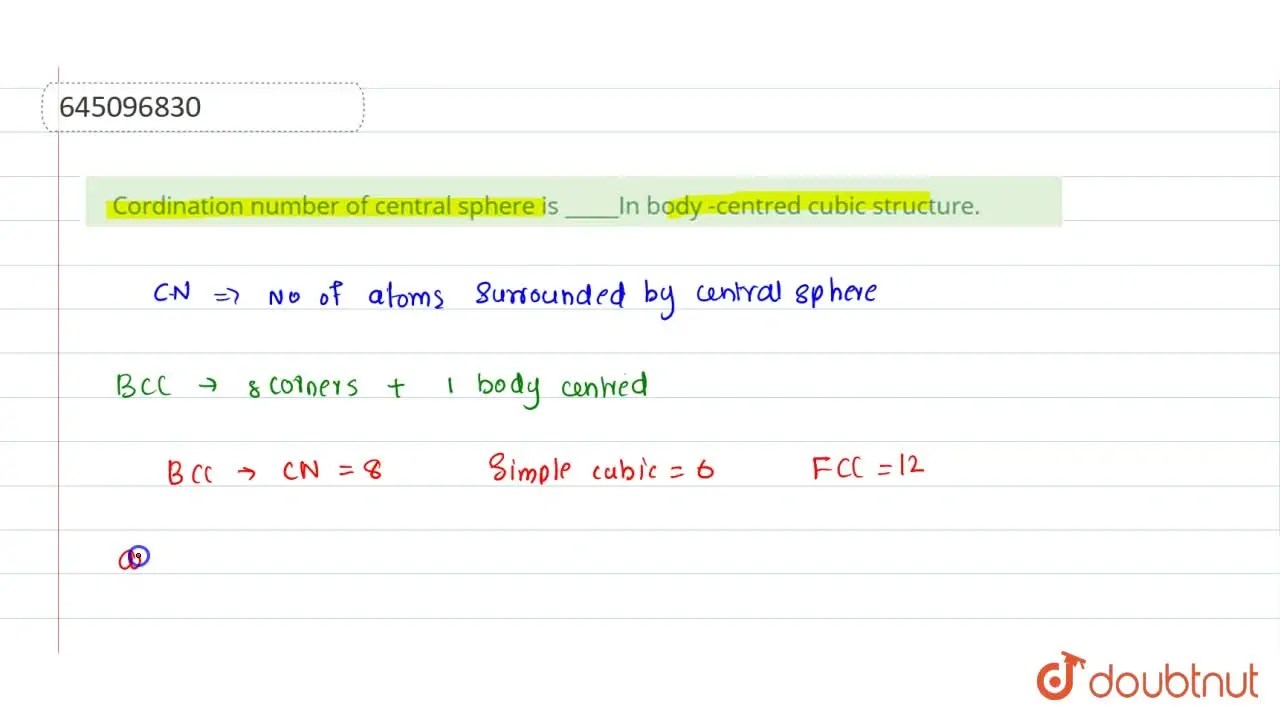 645096830
Cordination number of central sphere is _____In body -centred cubic structure.
CN ⇒ No of atoms surrounded by central sphere
BCC → 8 corners + 1 body centred
BCC → CN = 8 Simple cubic = 6 FCC = 12
a
doubtnut